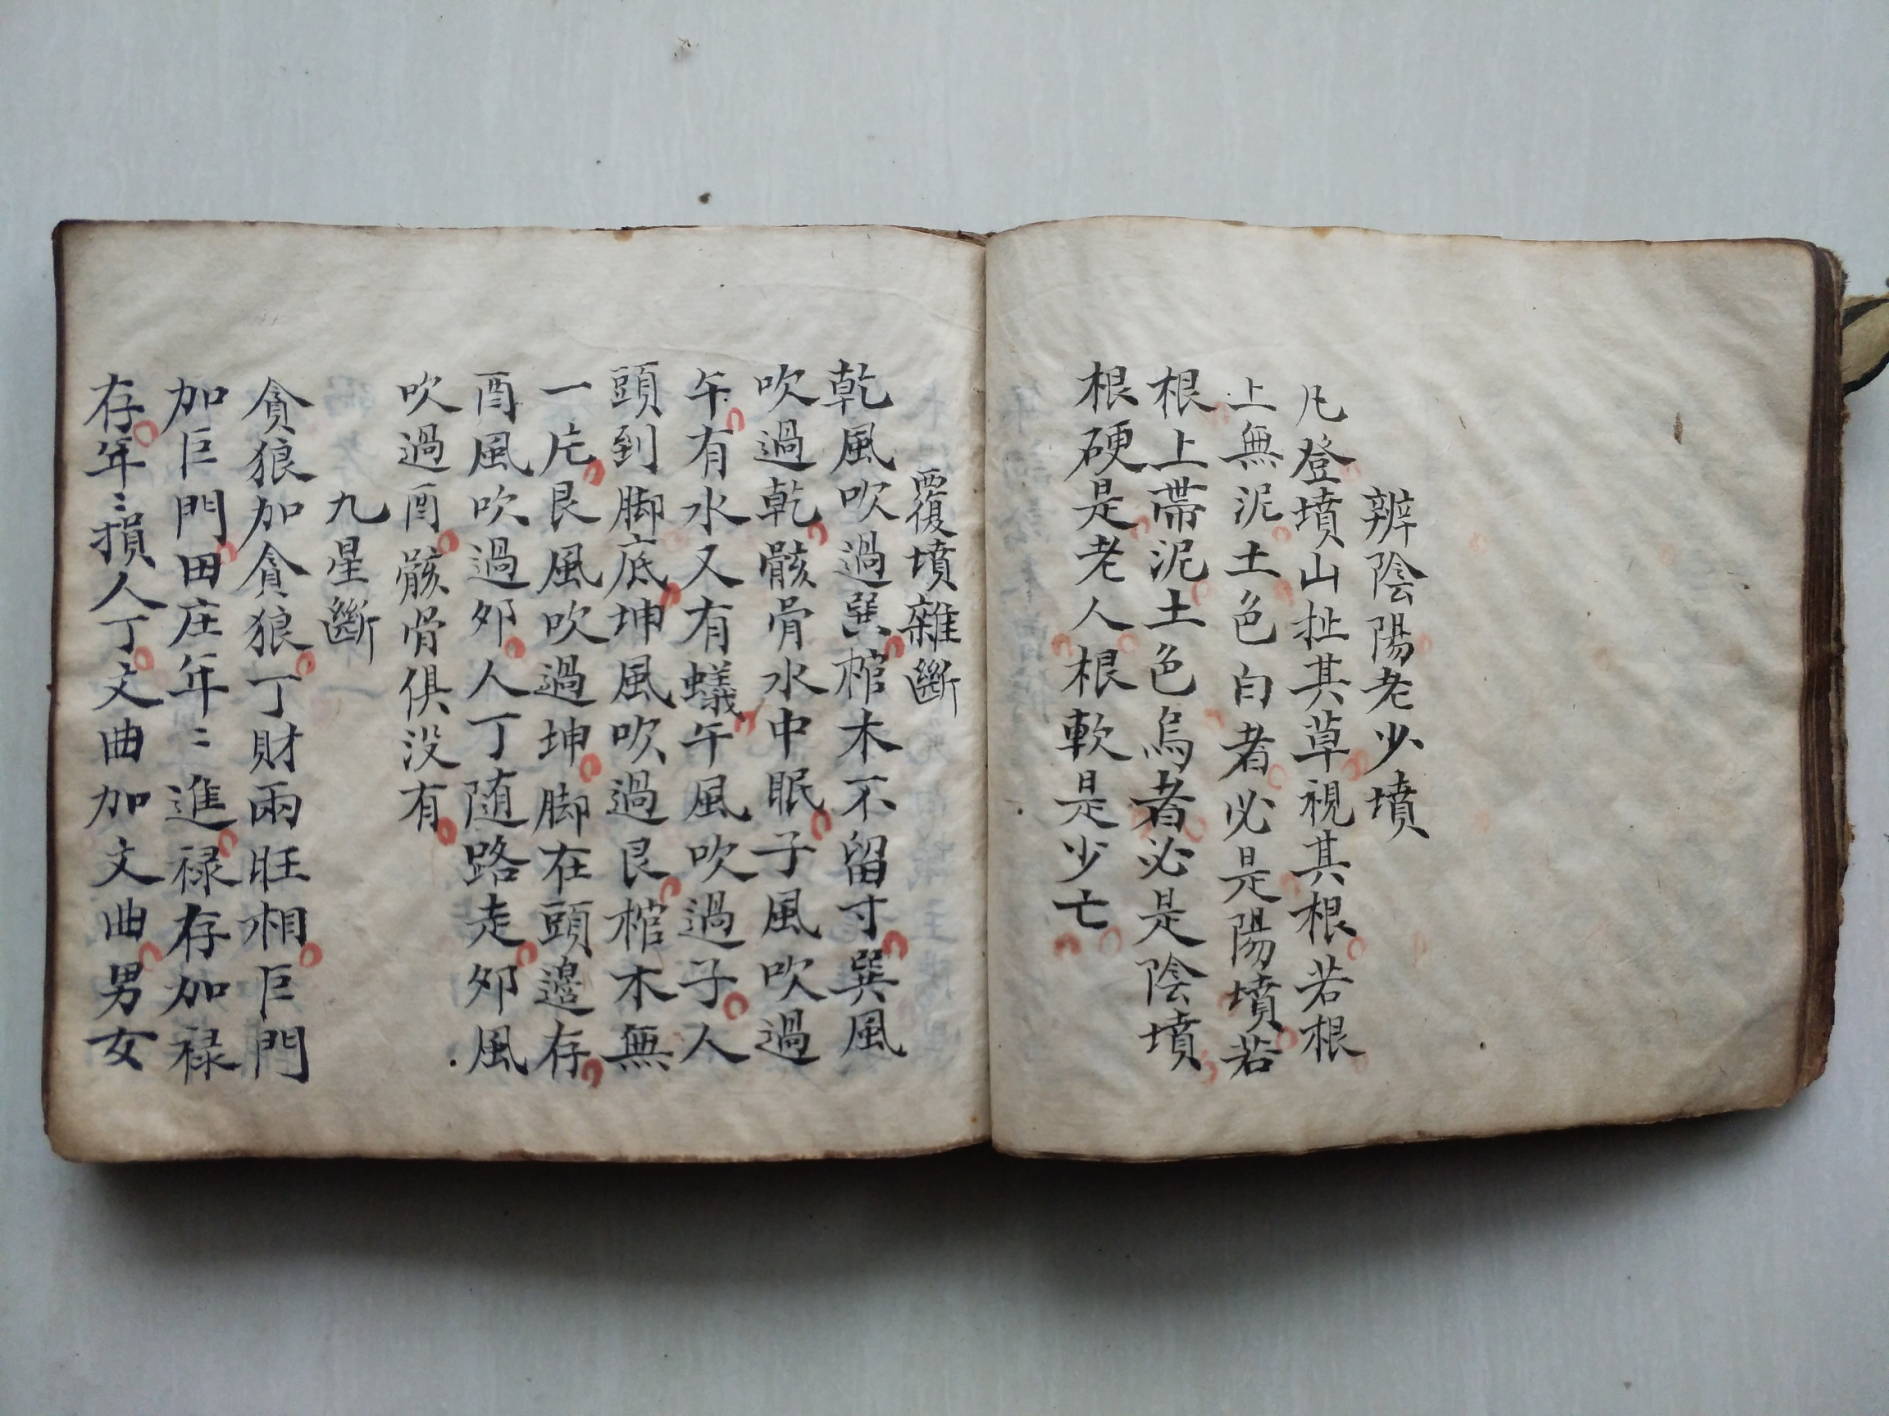 辨陰陽老少墳
凡登墳山扯其草視其根若根
上無泥土色白者必是陽墳若
根上帶泥土色烏者必是陰墳
根硬是老人根軟是少亡
覆墳雜斷
乾風吹過巽棺木不留寸巽風
吹過乾骸骨水中眠子風吹過
午有水又有蟻午風吹過子人
頭到脚底坤風吹過艮棺木無
一片艮風吹過坤脚在頭邊存
酉風吹過夘人丁随路走夘風
吹過酉骸骨俱没有
九星斷
貪狼加貪狼丁財兩旺相巨門
加巨門田庄年〻進禄存加禄
存年〻損人丁文曲加文曲男女